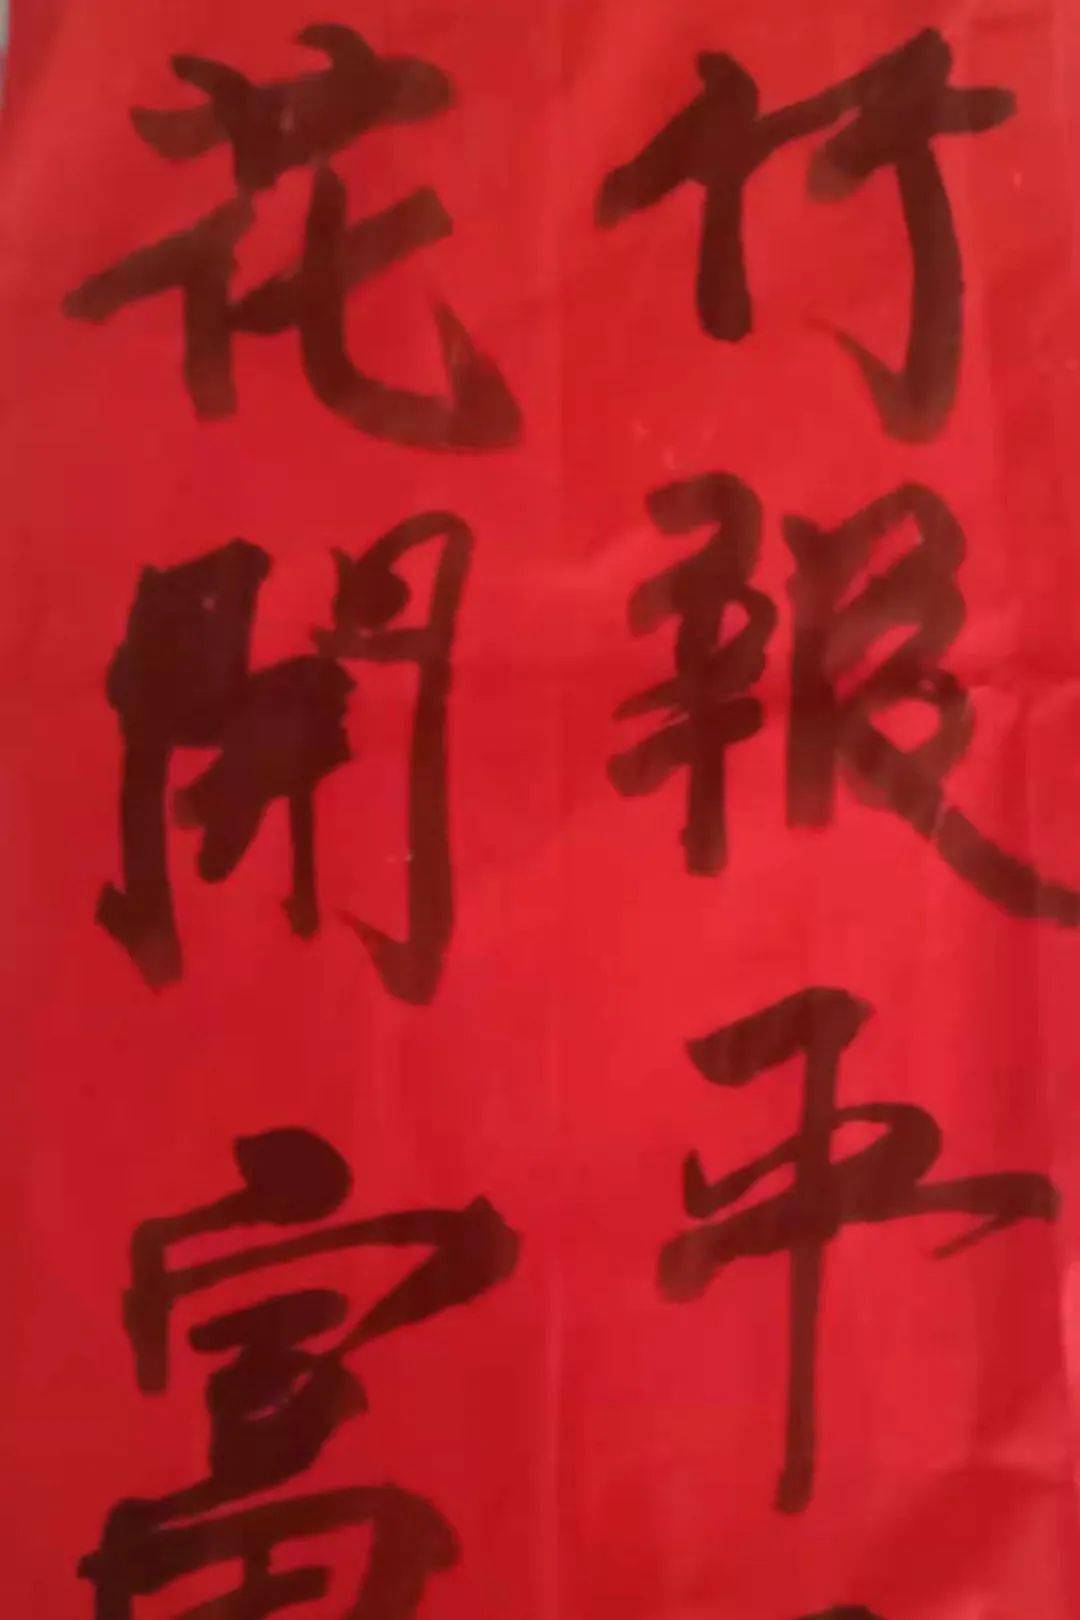 竹報平
花開富